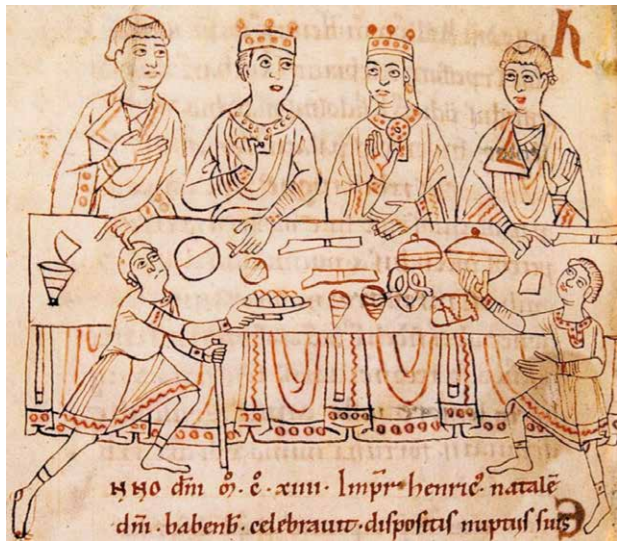 h
NNO dm̅ m̊. c̊. xiiii. Imp̅r henric᷒. natale̅
dm̅i babenb̅. celebravit. dispositis nuptiis suis